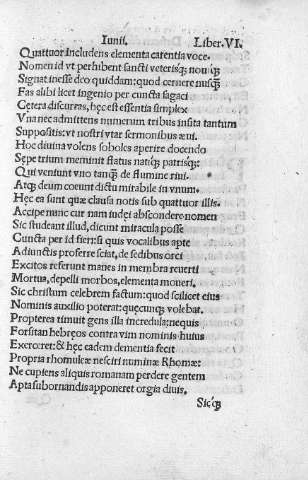 Iunii. Liber.VI.
Quattuor includens elementa carentia voce.
Nomen id vt perhibent sancti veterisq; nouiq;
Signat inesse deo quiddam: quod cernere nusq̃
Fas alibi licet ingenio per cuncta sagaci
Cętera discurras, hęc est essentia simplex
Vna nec admittens numerum tribus insita tantum
Suppositis: vt nostri vtar sermonibus æui.
Hoc diuina volens soboles aperire docendo
Sępe trium meminit status natiq; patrisq;:
Qui veniunt vno tanq̃ de flumine riui.
Atq; deum coeunt dictu mirabile in vnum.
Hęc ea sunt quæ clausa notis sub quattuor illis.
Accipe nunc cur nam iudei abscondere nomen
Sic studeant illud, dicunt miracula posse
Cuncta per id fieri: si quis vocalibus apte
Adiunctis proferre sciat, de sedibus orci
Excitos referunt manes in membra reuerti
Mortua, depelli morbos, elementa moueri.
Sic christum celebrem factum: quod scilicet eius
Nominis auxilio poterat: quęcunq; volebat.
Propterea timuit gens illa incredula: nequis
Forsitan hebręos contra vim nominis huius
Exerceret: & hęc eadem dementia fecit
Propria rhomuleæ nesciri numina Rhomæ:
Ne cupiens aliquis romanam perdere gentem
Apta subornandis apponeret orgia diuis.
Sic q;